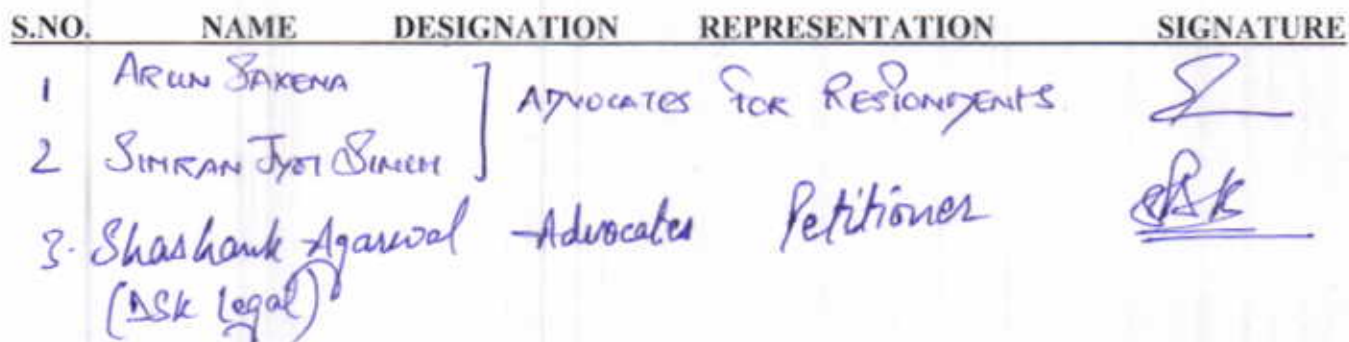 S.NO. NAME DESIGNATION REPRESENTATION SIGNATURE
1 ARUN SAXENA ] ADVOCATES FOR RESPONDENTS
2 SIMRAN JYOT SINGH
3. Shashank Agarwal - Advocates Petitioner
(DSK Legal)